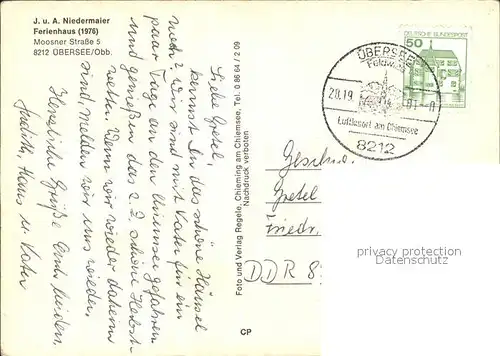 J. u. A. Niedermaier
Ferienhaus (1976)
Moosner Straße 5
8212 ÜBERSEE/Obb.
Liebe Gretel,
kennst Du das schöne Häusel
noch? Wir sind mit Vater für ein
paar Tage an den Chiemsee gefahren
und genießen das z. Z. schöne Herbst-
wetter. Wenn wir wieder daheim
sind, melden wir uns wieder.
Herzliche Grüße Euch beiden,
Judith, Hans u. Vater
Foto und Verlag Regele, Chieming am Chiemsee, Tel. 0 86 64 / 2 09
Nachdruck verboten
CP
50
DEUTSCHE BUNDESPOST
ÜBERSEE
Feldwies
20.10
81-
Luftkurort am Chiemsee
8212
Geschw.
Gretel
Friedr.
DDR 8
privacy protection
Datenschutz